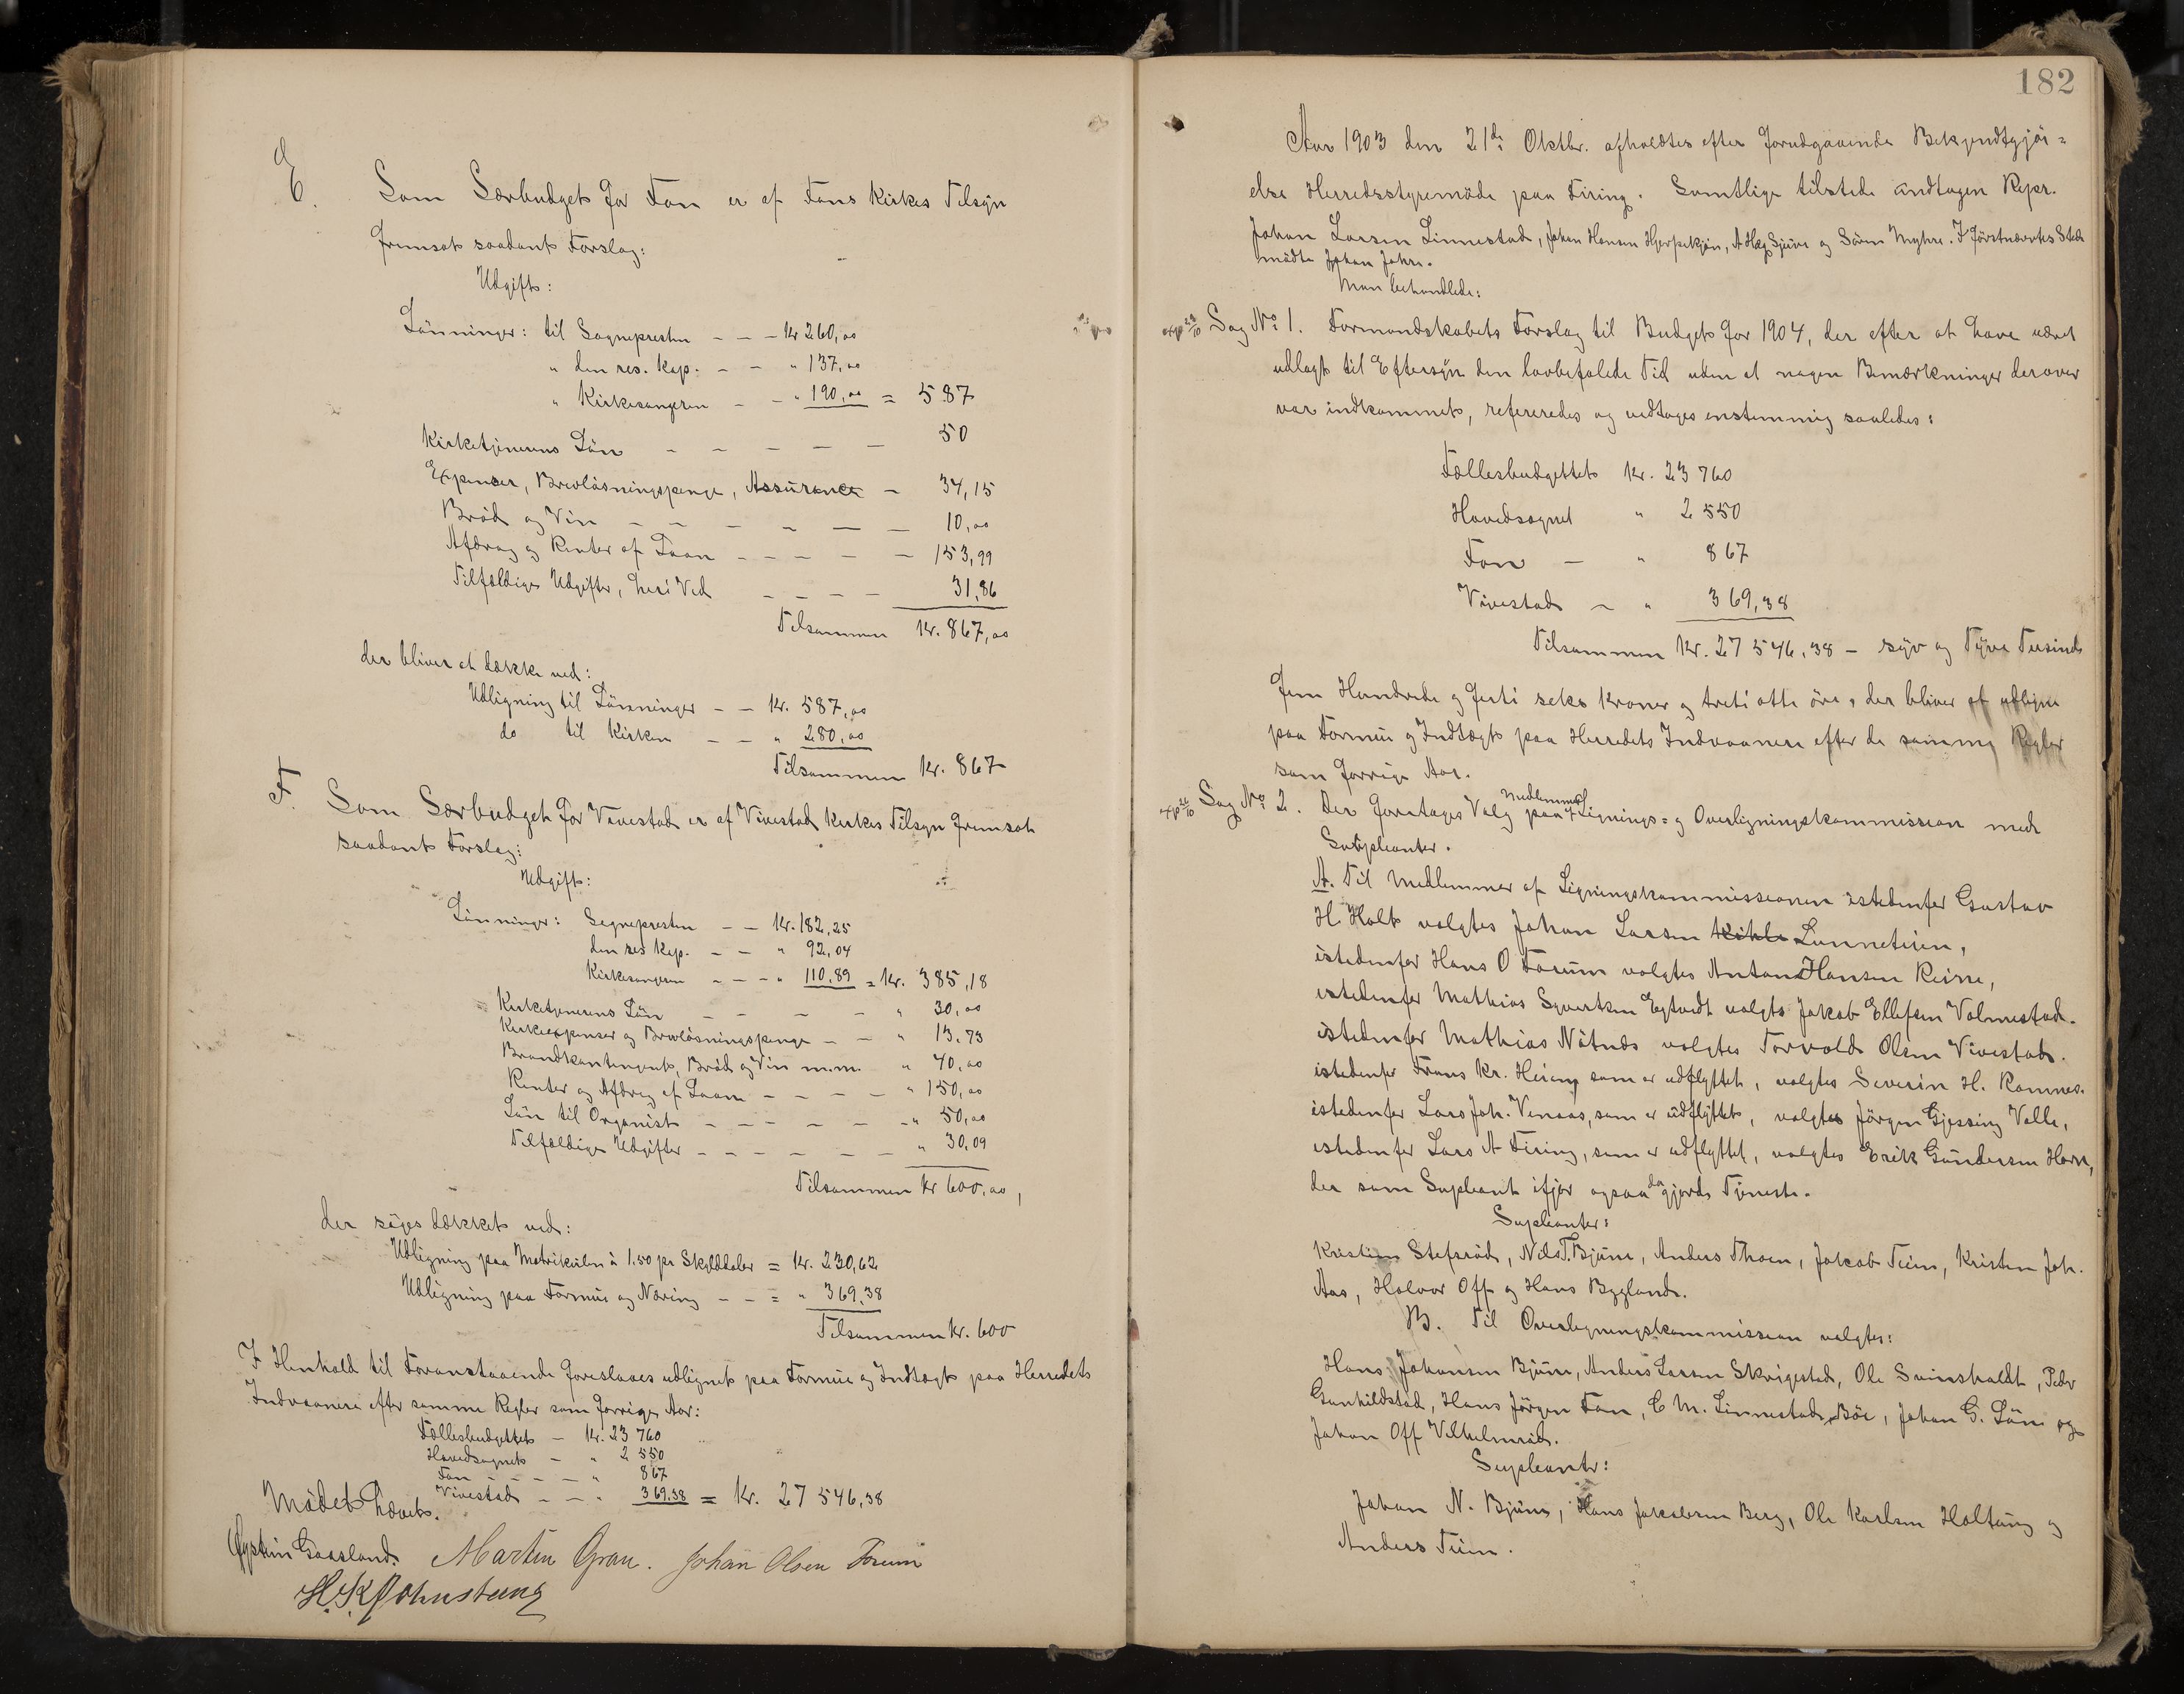 E.
Som Særbudget for Fon er af Fons Kirkes Tilsyn
fremsat saadant Forslag:
Udgift:
Lönninger: til Sognepresten – – – Kr 260,00
" den res. Kap. – – " 137,00
" Kirkesangeren – – " 190,00 = 587
Kirketjenerens Lön – – – – – 50
Expenser, Brevlösningspenge, Assurance – 34,15
Bröd og Vin – – – – – – 10,00
Afdrag og Renter af Laan – – – – – 153,99
Tilfældige Udgifter, heri Ved – – – – 31,86
Tilsammen Kr. 867,00
der bliver at dække ved:
Udligning til Lönninger – – Kr. 587,00
do til Kirken – – " 280,00
Tilsammen Kr. 867
F.
Som Særbudget for Vivestad er af Vivestad Kirkes Tilsyn fremsat
saadant Forslag:
Udgift:
Lönninger: Sognepresten – – Kr. 182,25
den res Kap. – – " 92,04
Kirkesangeren – – – " 110,89 = Kr. 385,18
Kirketjenerens Lön – – – – " 30,00
Kirkeexpenser og Brevlösningspenge – – " 13,73
Brandkontingent, Bröd og Vin m.m. " 40,00
Renter og Afdrag af Laan – – – – " 150,00
Lön til Organist – – – – – " 50,00
Tilfældige Udgifter – – – – – – " 30,09
Tilsammen Kr 600,00,
der söges dækket ved:
Udligning paa Matrikülen à 1.50 pr Skylddaler = Kr. 230,62
Udligning paa Formüe og Næring – – = " 369,38
Tilsammen Kr. 600
I Henhold til Foranstaaende foreslaaes udlignet paa Formüe og Indtægt paa Herredets
Indvaanere efter samme Regler som forrige Aar:
Fællesbudgettet – Kr. 23 760
Hovedsognet – " 2 550
Fon – – – – " 867
Vivestad – – " 369.38 = Kr. 27 546,38
Mödet hævet.
Öystein Gaasland. Martin Gran. Johan Olsen Forum
H. K. Johnstang
182
Aar 1903 den 21de Oktbr. afholdtes efter forudgaaende Bekjendtgjör=
else Herredsstyremöde paa Firing. Samtlige tilstede undtagen Repr.
Johan Larsen Linnestad, Johan Hansen Hjerpekjön, A Hag Sjüve og Sören Myhre. I Förstnævntes Sted
mödte Johan Jahre.
Man behandlede:
Sag No 1. Formandskabets Forslag til Budget for 1904, der efter at have været
udlagt til Eftersyn den lovbefalede Tid uden at nogen Bemærkninger derover
var indkommet, refereredes og vedtoges enstemmig saaledes:
Fællesbudgettet Kr. 23 760
Hovedsognet " 2 550
Fon – " 867
Vivestad – " 369,38
Tilsammen Kr. 27 546,38 – syv og Tyve Tusinde
fem Hundrede og förti seks Kroner og treti otte öre, der bliver at udligne
paa Formüe og Indtægt paa Herredets Indvaanere efter de samme Regler
som forrige Aar.
Sag No 2. Der foretages Valg paa Medlemmer Lignings= og Overligningskommission med
Supleanter.
A. Til Medlemmer af Ligningskommissionen istedenfor Gustav
H. Holt valgtes Johan Larsen Lunneteien,
istedenfor Hans O Forum valgtes Anton Hansen Reirre,
istedenfor Mathias Syvertsen Egtvedt valgtes Jakob Ellefsen Valmestad.
istedenfor Mathias Nötnes valgtes Torvald Olsen Vivestad.
istedenfor Frans Kr. Heieng som er udflyttet, valgtes Severin H. Ramnes.
istedenfor Lars Joh. Venaas, som er udflyttet, valgtes Jörgen Gjessing Valle,
istedenfor Lars A Firing, som er udflyttet, valgtes Erik Gundersen Horn,
der som Supleant ifjor ogsaa da gjorde Tjeneste.
Supleanter:
Kristian Stefsröd, Nils T. Bjüne, Anders Thoen, Jakob Teien, Kristen Joh.
Aas, Halvor Off og Hans Bygland.
B. Til Overligningskommission valgtes:
Hans Johansen Bjüne, Anders Larsen Skrigestad, Ole Svinsholdt, Peder
Gunhildstad, Hans Jörgen Fon, C M. Linnestad Böe, Johan G. Löne og
Johan Off Vilhelmröd.
Supleanter:
Johan N. Bjüne, Hans Jakobsen Berg, Ole Karlsen Holtüng og
Anders Teien.